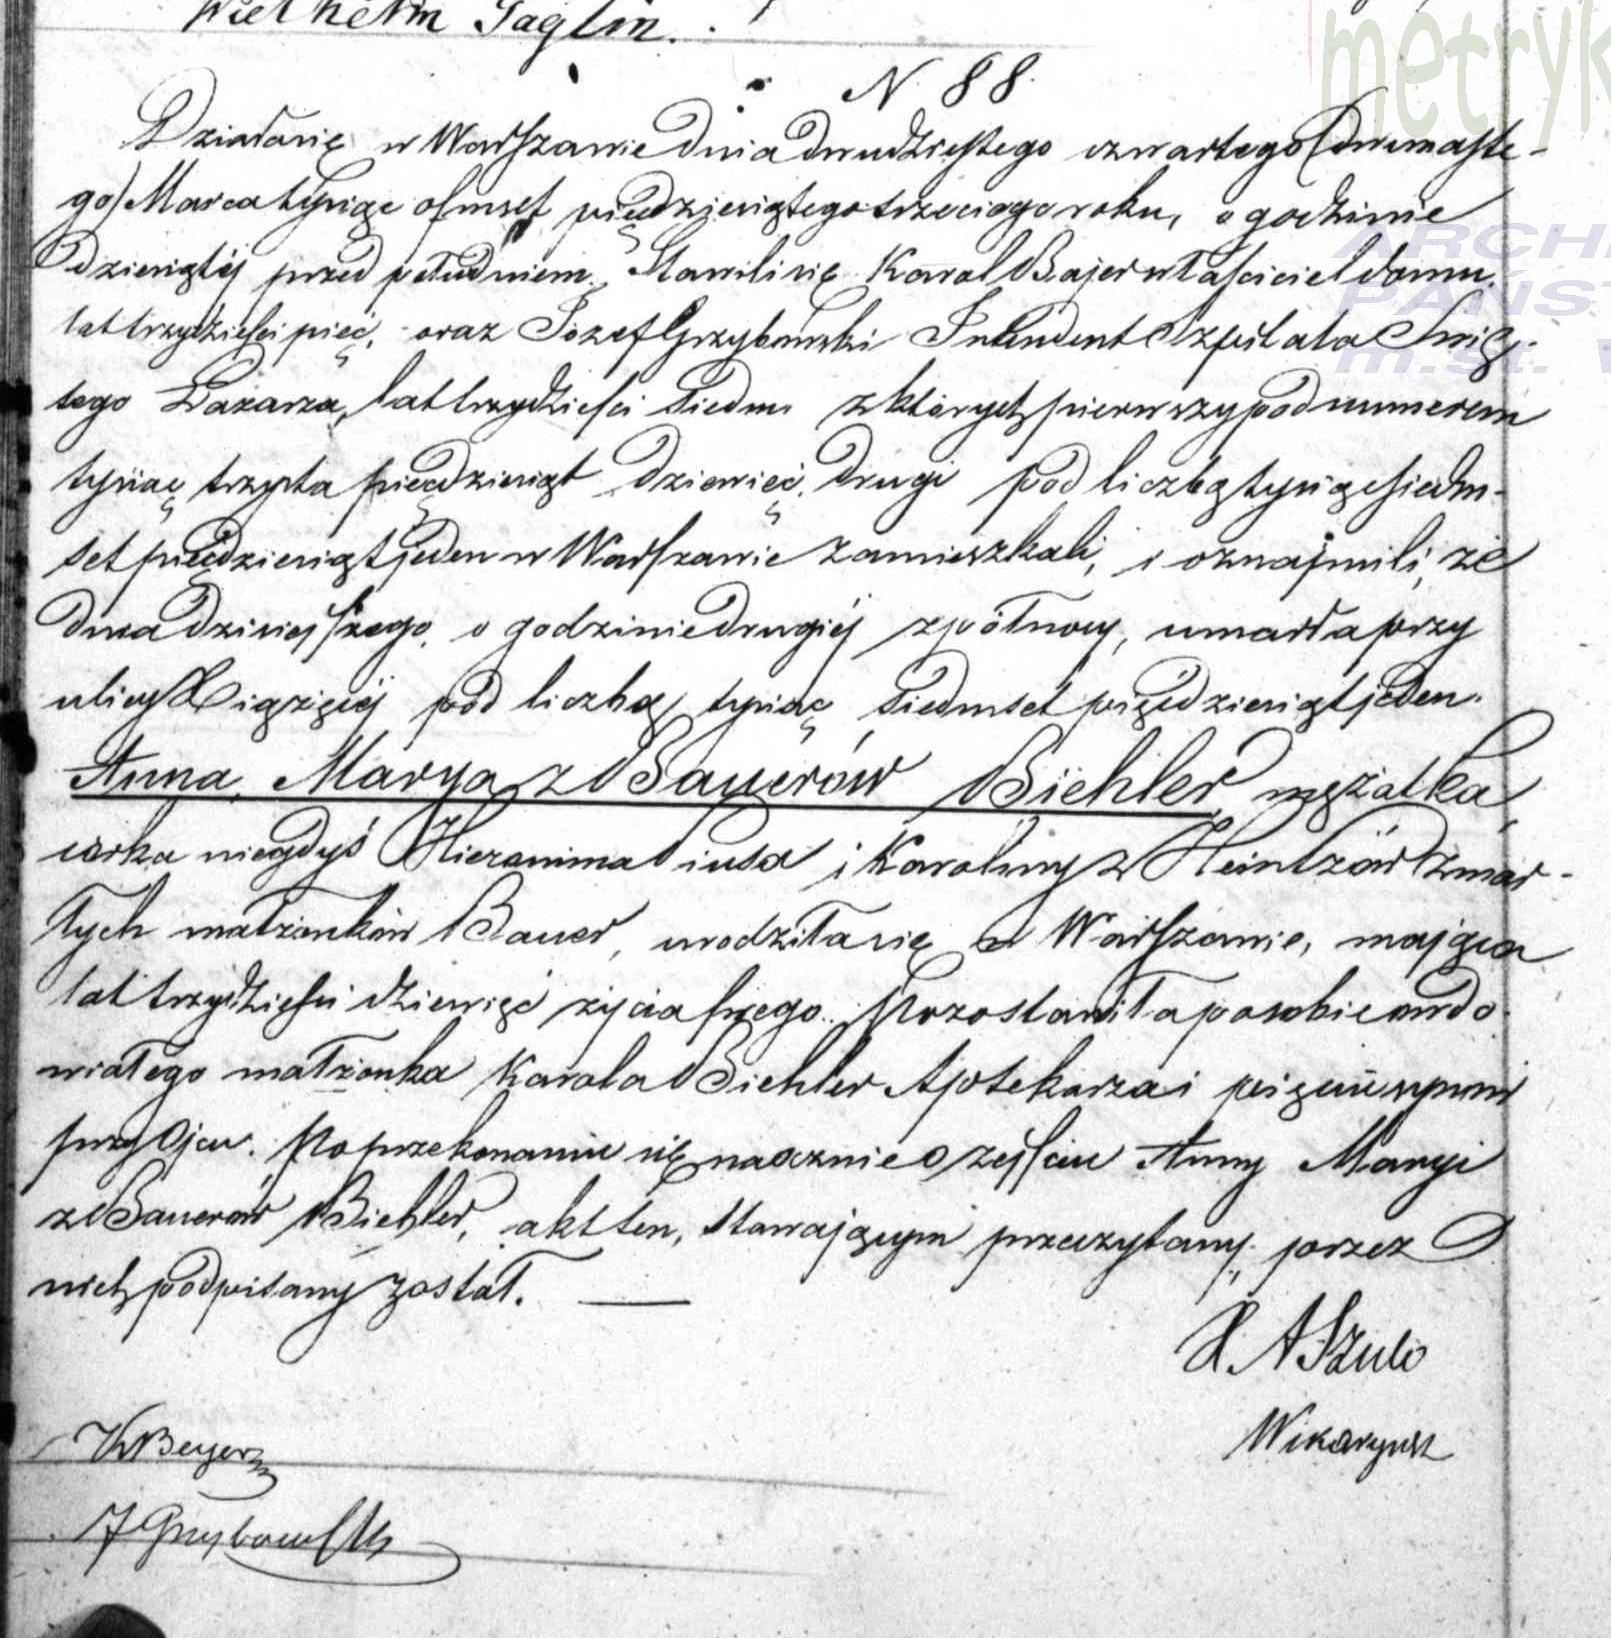 Wielhelm Taglin.
N. 88.
Działo się w Warszawie Dnia dwudziestego czwartego (dwunaste-
go) Marca tysiąc ośmset pięćdziesiątego trzeciego roku, o godzinie
dziesiątéj przed południem. Stawili się Karol Bajer właściciel domu,
lat trzydzieści pięć, oraz Józef Grzybowski Intendent Szpitala Świę-
tego Łazarza, lat trzydzieści siedm z których pierwszy pod numerem
tysiąc trzysta pięćdziesiąt dziewięć, drugi pod liczbą tysiąc siedm-
set pięćdziesiąt jeden w Warszawie zamieszkali, i oznajmili, że
dnia dzisiejszego, o godzinie drugiéj z północy, umarła przy
ulicy Książęcéj pod liczbą tysiąc siedmset pięćdziesiąt jeden.
Anna, Marya z Bauerów Biehler mężatka
córka niegdyś Hieronima i Karoliny z Heintzów zmar-
łych małżonków Bauer, urodziła się w Warszawie, mająca
lat trzydzieści dziewięć życia swego. Pozostawiła po sobie owdo-
wiałego małżonka Karola Biehler Aptekarza i
przy Ojcu. Po przekonaniu się naocznie o zejściu Anny Maryi
z Bauerów Biehler, akt ten, stawającym przeczytany, przez
nich podpisany został.
X. A Szulc
Wikaryusz
K Beyer
J Grzybowski
metryk
ARCHI
PAŃST
m.st. W